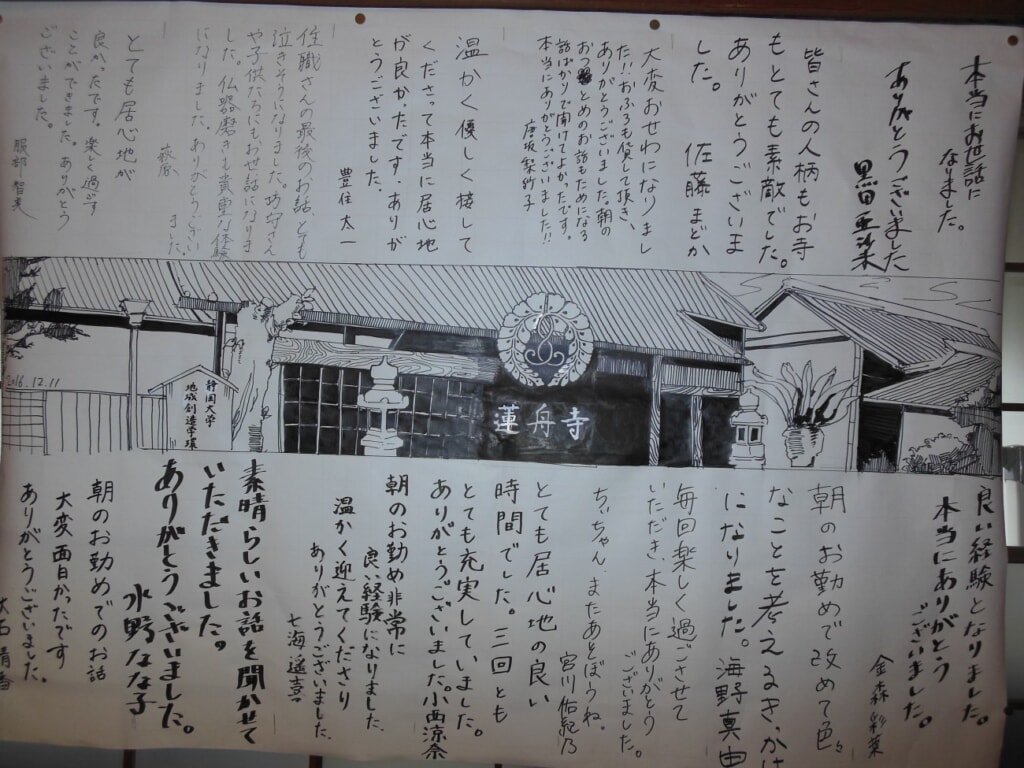 本当にお世話に
なりました。
ありがとうございました
黒田亜沙未
皆さんの人柄もお寺
もとても素敵でした。
ありがとうございま
した。
佐藤まどか
大変おせわになりまし
た!!おふろも貸して頂き、
ありがとうございました。朝の
おつとめのお話もためになる
話ばかりで聞けてよかったです。
本当にありがとうございました!!
温かく優しく接して
くださって本当に居心地
が良かったです。ありが
とうございました。
豊住太一
住職さんの最後のお話、とても
泣きそうになりました。坊守さん
や子供たちにもお世話になりま
した。仏器磨きも貴重な体験
になりました。ありがとうござい
ました
とても居心地が
良かったです。楽しく過ごす
ことができました。ありがとう
ございました。
服部智美
2016.12.11
静岡大学
地域創造学環
蓮舟寺
良い経験となりました。
本当にありがとう
ございました。
金森彩菜
朝のお勤めで改めて色々
なことを考えるきっかけ
になりました。海野真由
毎回楽しく過ごさせて
いただき、本当にありがとう
ございました。
ちぃちゃん、またあそぼうね。
宮川佑紀乃
とても居心地の良い
時間でした。三回とも
とても充実していました。
ありがとうございました。小西涼奈
朝のお勤め非常に
良い経験になりました。
温かく迎えてくださり
ありがとうございました。
七海遥喜
素晴らしいお話を聞かせて
いただきました。
ありがとうございました。
水野なな子
朝のお勤めでのお話
大変面白かったです
ありがとうございました。